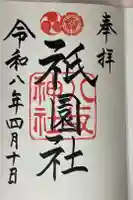 奉拝
八坂神社
祇園社
令和八年四月十日